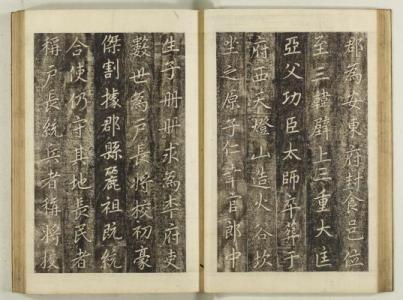 郡為安東府封食邑位
至三韓壁上三重大匡
亞父功臣太師卒葬于
府西天燈山造火谷坎
坐之原子仁幸官郎中
生子冊冊求為本府吏
數世為戶長將校初豪
傑割據郡縣麗祖既統
合使仍守其地長民者
稱戶長統兵者稱將校